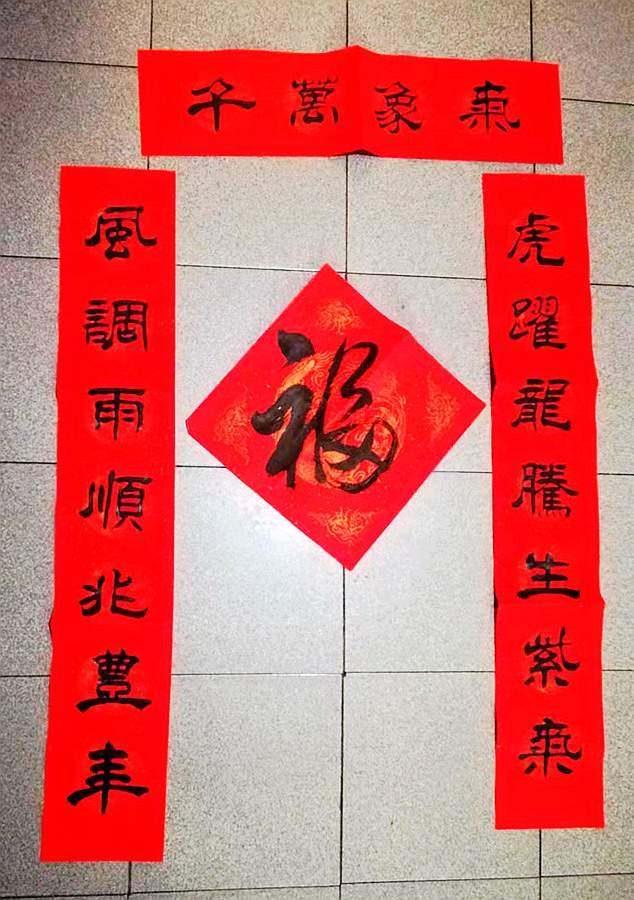 氣象萬千
虎躍龍騰生紫氣
風調雨順兆豐年
福